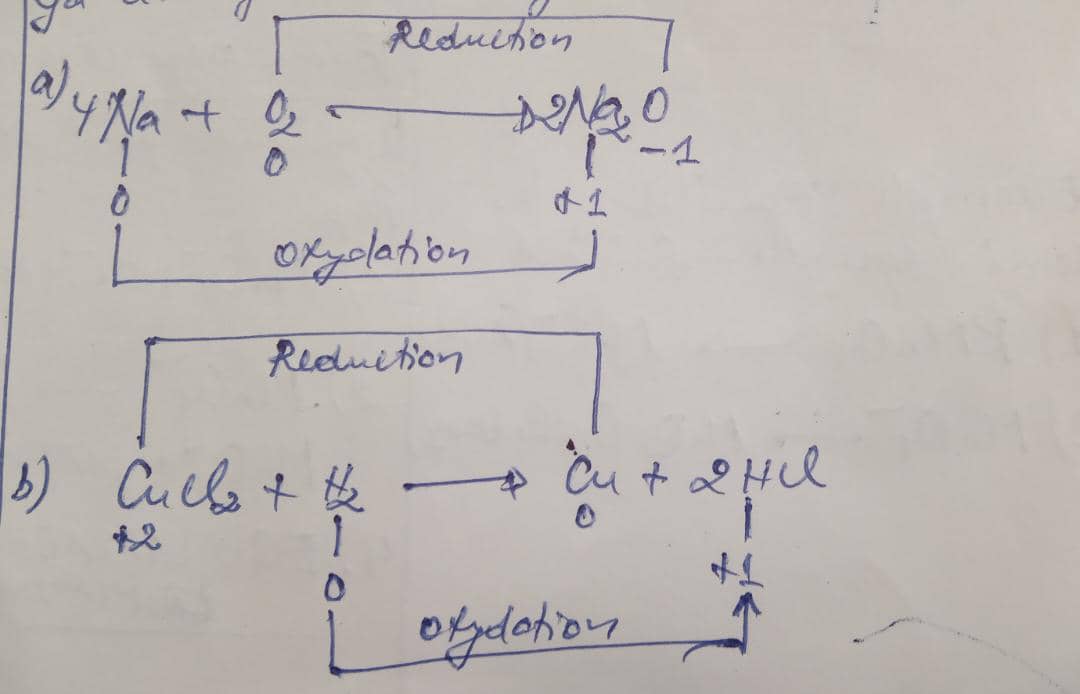 Reduction
a) 4Na + O2 → 2Na2O
0 -1
0 +1
oxydation
Reduction
b) CuCl2 + H2 → Cu + 2HCl
+2 0
0 +1
oxydation